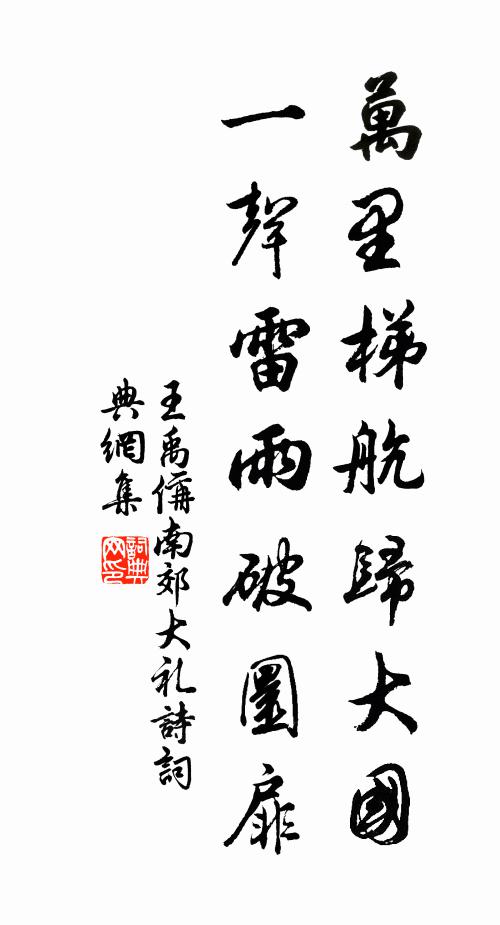 萬里梯航歸大國
一聲雷雨破圜扉
王禹偁南郊大礼詩詞
典網集
詞典网印